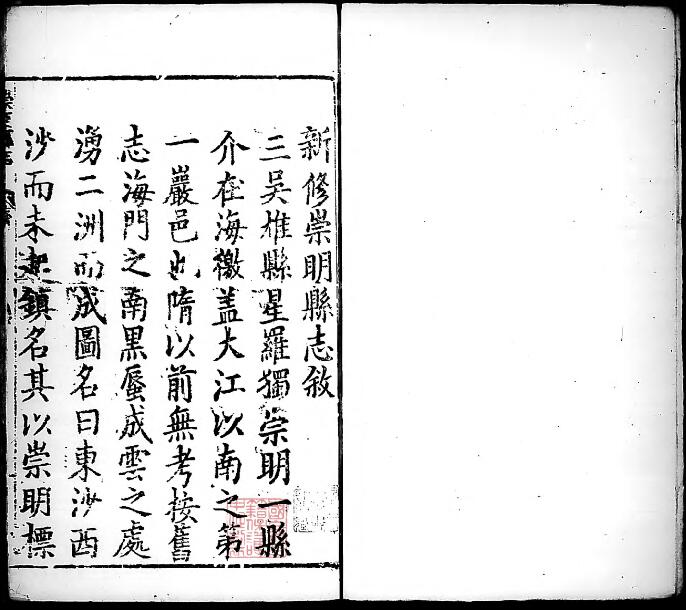 新修崇明縣志敘
三吳雄縣星羅獨崇明一縣
介在海徼盖大江以南之第
一巖邑也隋以前無考按舊
志海門之南黑蜃成雲之處
湧二洲而成圖名曰東沙西
沙而未起鎮名其以崇明標